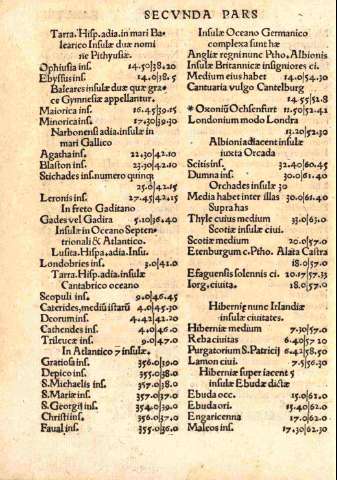 SECVNDA PARS
Tarra. Hisp. adia. in mari Ba
learico Insulæ duæ nomi
ne Pithyusiæ.
Ophiusia ins. 14.50|38.20
Ebyssus ins. 14.0|38.5
Baleares insulæ duæ quæ græ
ce Gymnesiæ appellantur.
Maiorica ins. 16.45|39.15
Minorica ins. 17.30|39.30
Narbonensi adia. insulæ in
mari Gallico
Agatha ins. 22.30|42.10
Blaston ins. 23.30|42.10
Stichades ins. numero quinq;
25.0|42.15
Leronis ins. 27.45|42.15
In freto Gaditano
Gades vel Gadira 5.10|36.40
Insulæ in Oceano Septen
trionali & Atlantico.
Lusita. Hispa. adia. Insu.
Londobries ins. 3.0|41.0
Tarra. Hisp. adia. insulæ
Cantabrico oceano
Scopuli ins. 9.0|46.45
Caterides, mediū istarū 4.0|45.30
Deorum ins. 4.42|42.20
Cathendes ins. 4.0|46.0
Trileucæ ins. 9.0|47.0
In Atlantico ⁊ insulæ.
Gratiosa ins. 356.0|39.0
Depico ins. 355.0|38.0
S. Michaelis ins. 357.0|38.0
S. Mariæ ins. 357.0|37.0
S. Georgij ins. 354.0|39.0
Christi ins. 355.0|37.0
Faual ins. 355.0|36.0
Insulæ Oceano Germanico
complexa sunt hæ
Angliæ regni nunc Ptho. Albionis
Insulæ Britannicæ insigniores ci.
Medium eius habet 14.0|54.30
Cantuaria vulgo Cantelburg
14.55|52.8
* Oxoniū Ochsenfurt 11.50|52.42
Londonium modo Londra
13.20|52.30
Albioni adiacent insulæ
iuxta Orcada
Scitis ins. 32.40|60.45
Dumna ins. 30.0|61.0
Orchades insulæ 30
Media habet inter illas 30.0|61.40
Supra has
Thyle cuius medium 33.0|63.0
Scotiæ insulæ ciui.
Scotiæ medium 20.0|57.0
Etenburgum c. Ptho. Alata Castra
18.0|57.0
Efaguensis solennis ci. 20.17|57.33
Iorg. ciuita. 18.0|57.0
Hiberniæ nunc Irlandiæ
insulæ ciuitates.
Hiberniæ medium 7.30|57.0
Reba ciuitas 6.40|57.20
Purgatorium S. Patricij 6.42|58.50
Lamon ciui. 7.5|56.30
Hiberniæ super iacent 5
insulæ Ebudæ dictæ
Ebuda occ. 15.0|61.0
Ebuda ori. 15.40|62.0
Engaricenna 17.0|62.0
Maleos ins. 17.30|62.30